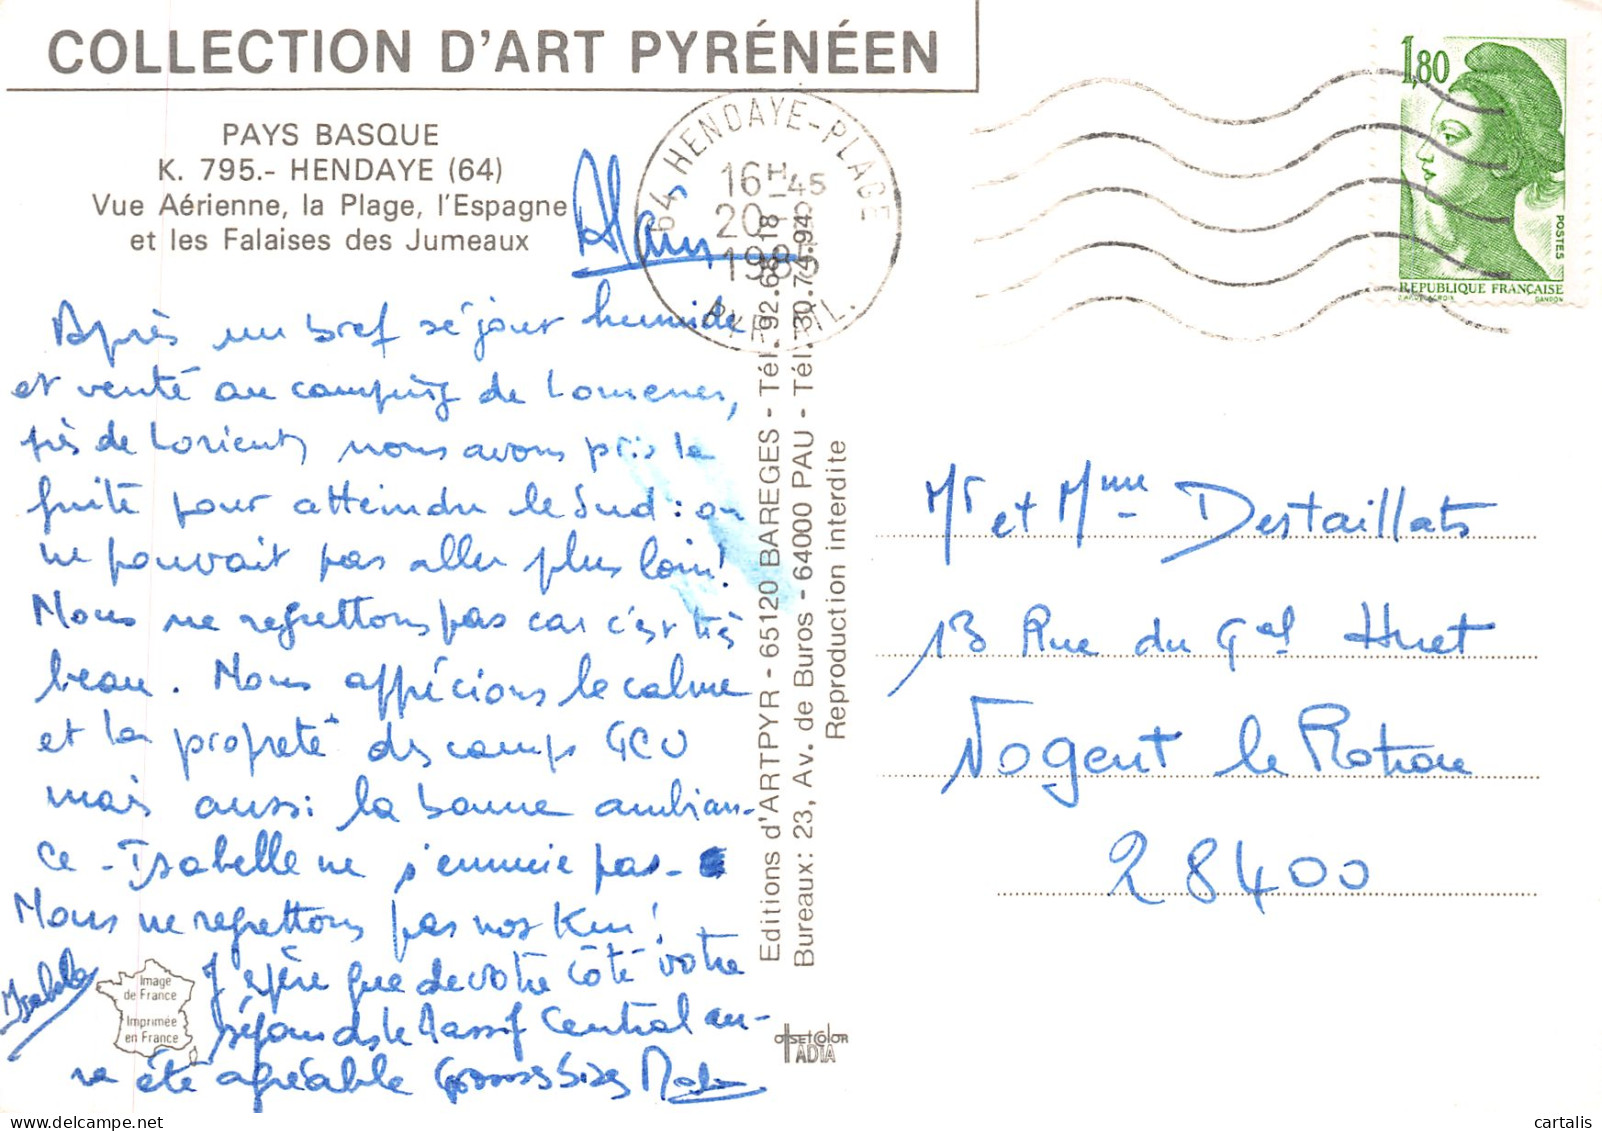 COLLECTION D'ART PYRÉNÉEN
PAYS BASQUE
K. 795.- HENDAYE (64)
Vue Aérienne, la Plage, l'Espagne
et les Falaises des Jumeaux
Alain
Après un bref séjour humide
et venté au camping de Lomener,
près de Lorient, nous avons pris la
fuite pour atteindre le Sud : on
ne pouvait pas aller plus loin !
Nous ne regrettons pas car c'est très
beau. Nous apprécions le calme
et la propreté des camps GCU
mais aussi la bonne ambian-
ce - Isabelle ne s'ennuie pas -
Nous ne regrettons pas nos Km !
J'espère que de votre côté votre
séjour ds le Massif Central au-
ra été agréable Grosses bises
Isabelle
Image
de France
Imprimée
en France
Editions d'ARTPYR - 65120 BAREGES - Tél. 92.68.18
Bureaux: 23, Av. de Buros - 64000 PAU - Tél. 30.74.94
Reproduction interdite
OFFSETCOLOR
ADIA
64 HENDAYE-PLAGE
16H45
20
PYR. ATL.
1,80
POSTES
RÉPUBLIQUE FRANÇAISE
GANDON
Mr et Mme Destaillats
13 Rue du Gal Huet
Nogent le Rotrou
28400
cartalis